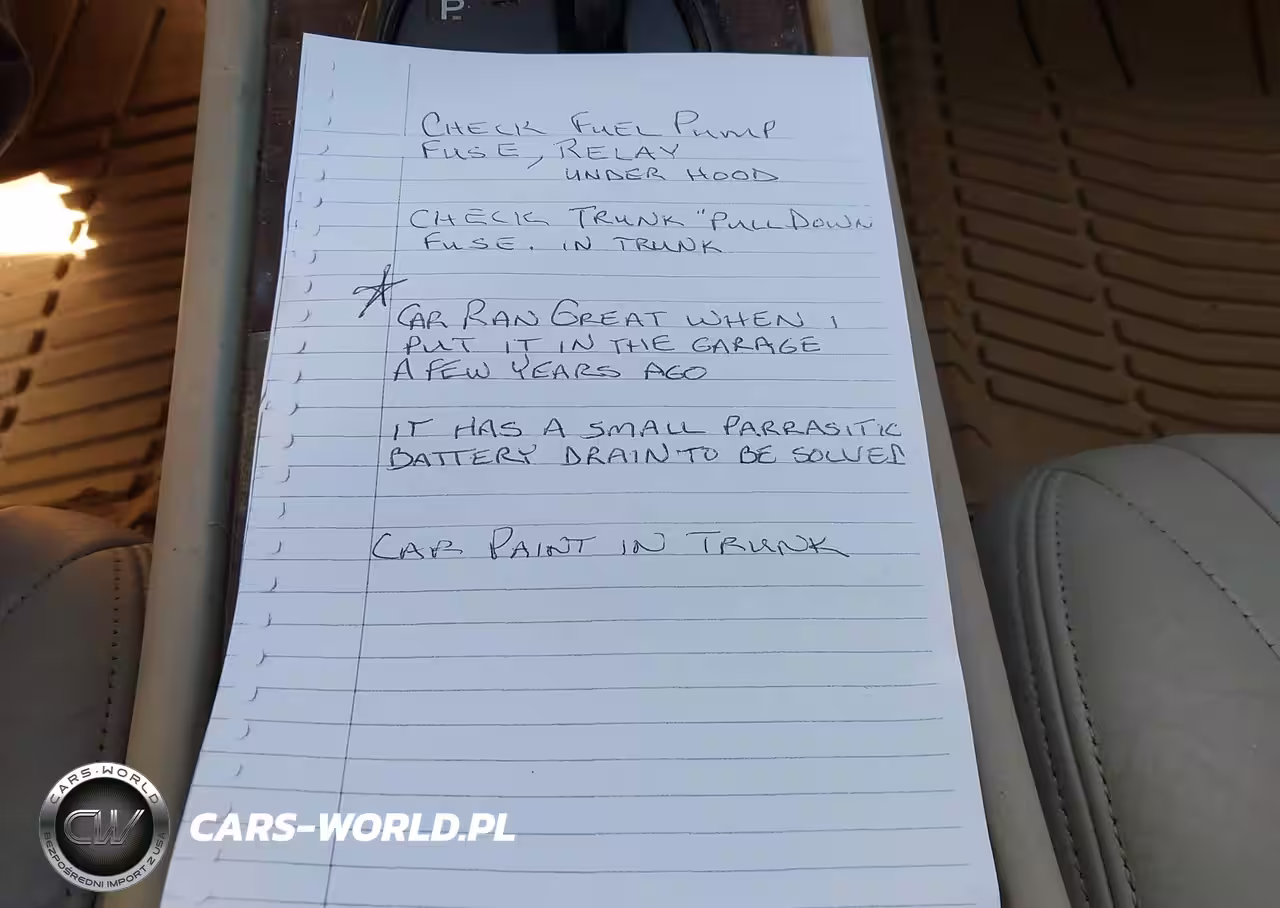 P
CHECK FUEL PUMP
FUSE, RELAY
UNDER HOOD
CHECK TRUNK "PULL DOWN
FUSE. IN TRUNK
CAR RAN GREAT WHEN I
PUT IT IN THE GARAGE
A FEW YEARS AGO
IT HAS A SMALL PARRASITIC
BATTERY DRAIN TO BE SOLVED
CAR PAINT IN TRUNK
CARS-WORLD
CW
BEZPOŚREDNI IMPORT Z USA
CARS-WORLD.PL